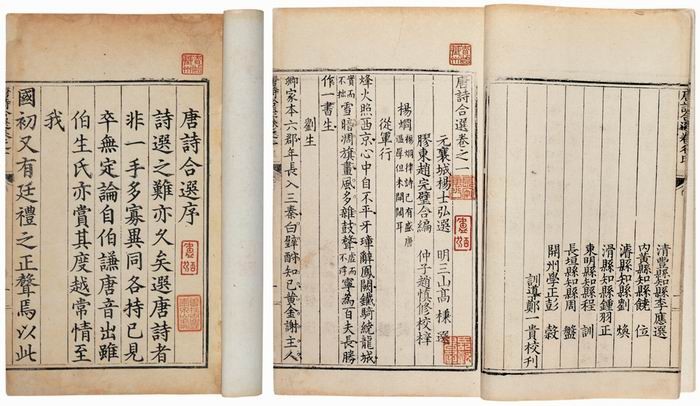 唐詩合選序
詩選之難亦久矣選唐詩者
非一手多寡異同各持已見
卒無定論自伯謙唐音出雖
伯生氏亦賞其度越常情至
我
國初又有廷禮之正聲焉以此
清豐縣知縣李應選
內黃縣知縣 位
濬縣知縣劉 煥
滑縣知縣鍾羽正
東明縣知縣程 訓
長垣縣知縣周 盤
開州學正彭
訓導鄭 貴校刊
唐詩合選卷之一
元襄城楊士弘選 明三山高棅選
膠東趙完璧合編 仲子趙慎修校梓
楊炯 楊炯律詩已有盛唐
從軍行
烽火照西京心中自不平牙璋辭鳳闕鐵騎繞龍城
實而不拙 雪暗凋旗畫風多雜鼓聲 虛而不浮 寧為百夫長勝
作一書生
劉生
卿家本六郡年長入三秦白璧酬知己黃金謝主人